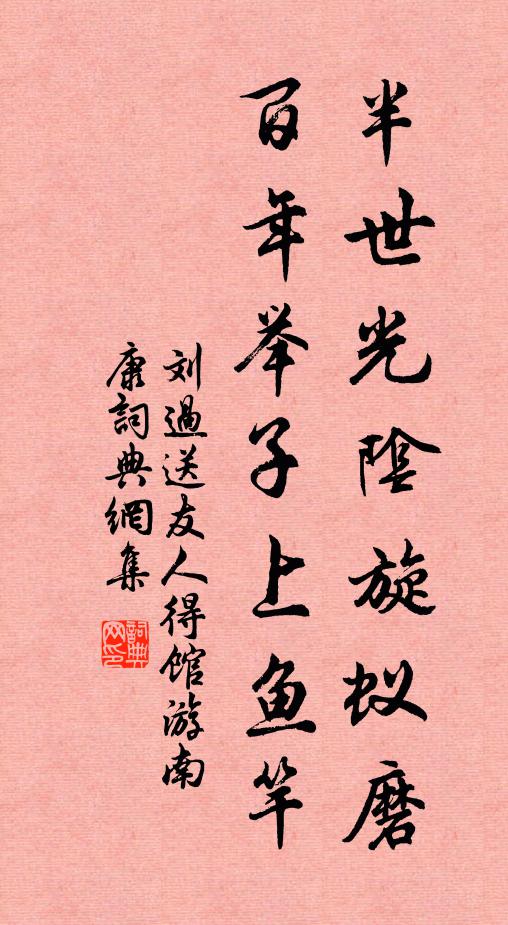 半世光陰旋蚁磨
百年举子上鱼竿
刘過送友人得馆游南
康詞典網集
詞典网印